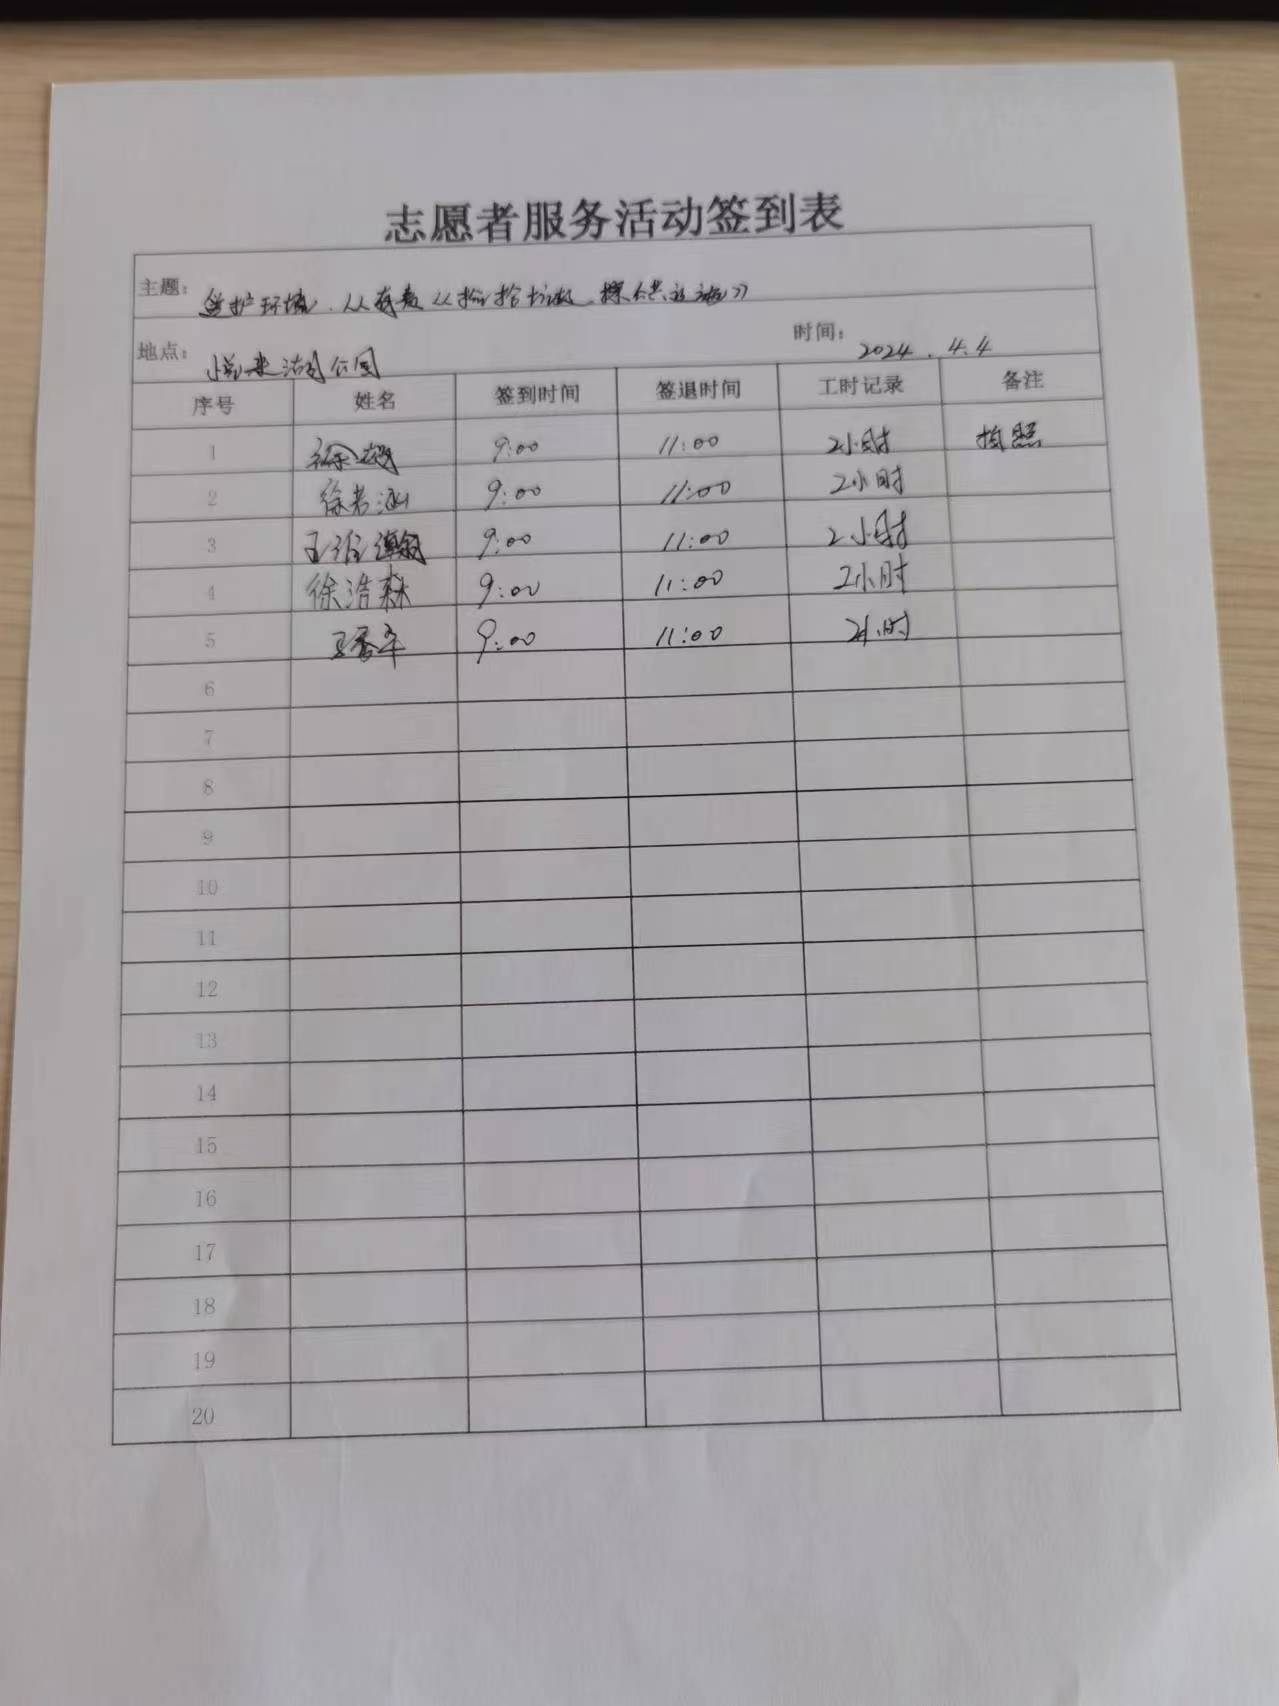 志愿者服务活动签到表
主题： 爱护环境，从有责《捡捡垃圾 擦公共设施》
地点： 悦来湖公园 时间： 2024.4.4
序号 姓名 签到时间 签退时间 工时记录 备注
1 徐 9:00 11:00 2小时 拍照
2 徐若汕 9:00 11:00 2小时
3 王 9:00 11:00 2小时
4 徐浩森 9:00 11:00 2小时
5 王香年 9:00 11:00 2小时
6
7
8
9
10
11
12
13
14
15
16
17
18
19
20